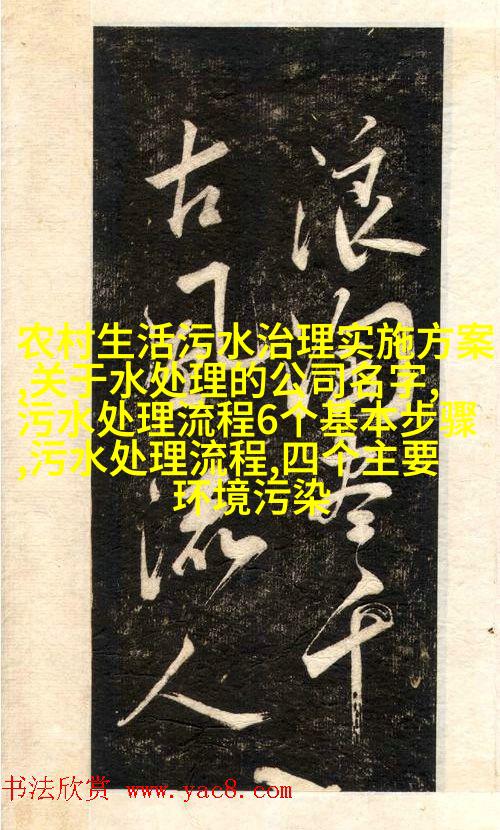 浪淘尽千
古風流人
农村生活污水治理实施方案
,关于水处理的公司名字,
污水处理流程6个基本步骤
,污水处理流程,四个主要
环境污染
书法欣赏 www.yac8.com